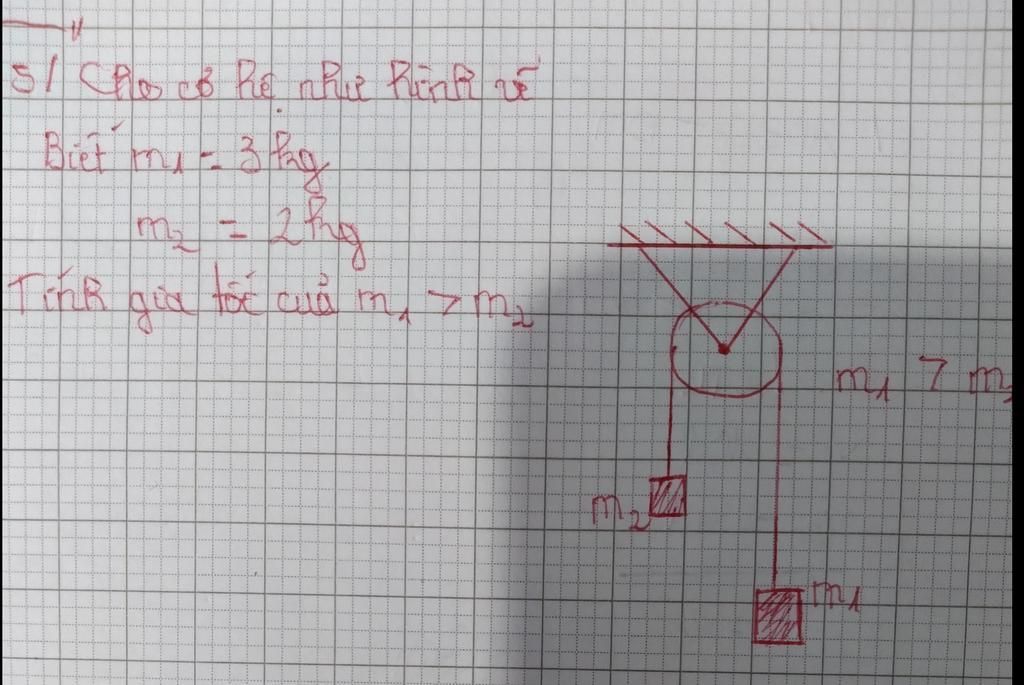 5/ Cho cơ hệ như hình vẽ
Biết m₁ = 3 kg
m₂ = 2 kg
Tính gia tốc của m₁ > m₂
m₁ > m₂
m₂
m₁